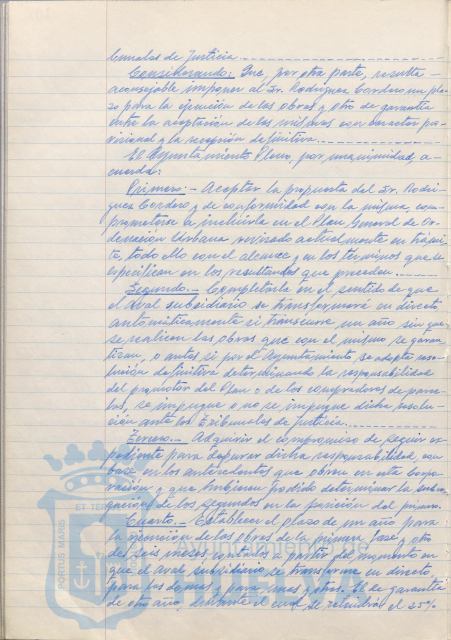 bunales de Justicia.
Considerando: Que, por otra parte, resulta
aconsejable imponer al Sr. Rodríguez Cordero un pla-
zo para la ejecución de las obras y otro de garantía
entre la aceptación de las mismas con carácter pro-
visional y la recepción definitiva.
El Ayuntamiento Pleno, por unanimidad, a-
cuerda:
Primero.- Aceptar la propuesta del Sr. Rodrí-
guez Cordero y de conformidad con la misma com-
prometerse a incluirla en el Plan General de Or-
denación Urbana revisado actualmente en trámi-
te, todo ello con el alcance y en los términos que se
especifican en los resultandos que preceden.
Segundo.- Completarla en el sentido de que
el aval subsidiario se transformará en directo,
automáticamente si transcurre un año sin que
se realicen las obras que con el mismo se garan-
tizan, o antes si por el Ayuntamiento se adopta reso-
lución definitiva determinando la responsabilidad
del promotor del Plan o de los compradores de parce-
las, se impugne o no se impugne dicha resolu-
ción ante los Tribunales de Justicia.
Tercero.- Adquirir el compromiso de seguir ex-
pediente para depurar dicha responsabilidad, con
base en los antecedentes que obran en esta Corpo-
ración y que hubiesen podido determinar la subro-
gación de los segundos en la posición del primero.
Cuarto.- Establecer el plazo de un año para
la ejecución de las obras de la primera fase y otro
de seis meses contados a partir del momento en
que el aval subsidiario se transforme en directo,
para las demás y para unas y otras. El de garantía
de otro año, durante el cual se retendrá el 25%
PORTUS MARIS ET TERRAE
Ayuntamiento de
HUELVA